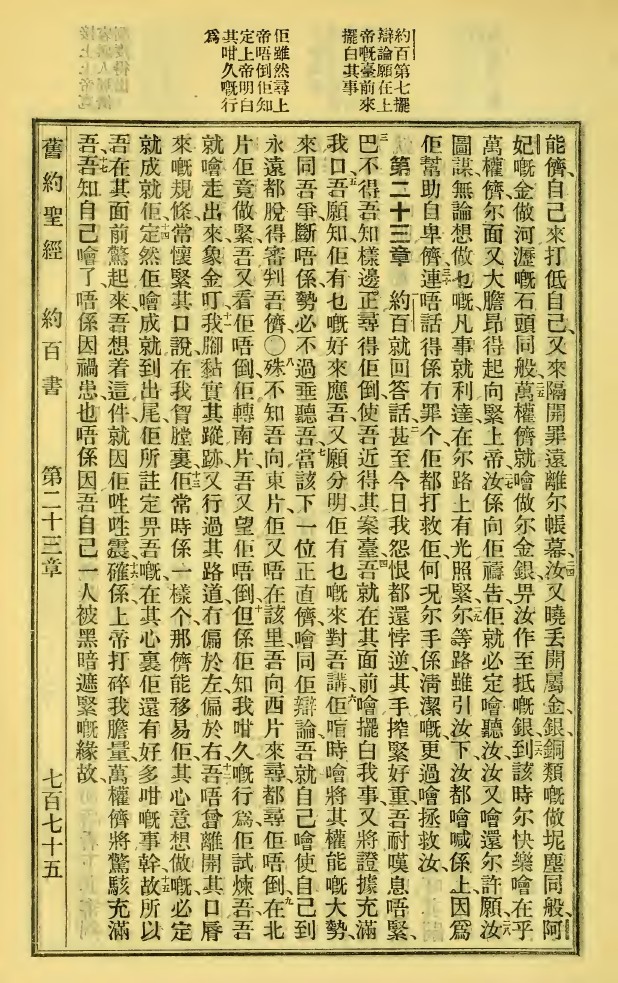 約百第七擺
辯論願在上
帝嘅臺前來
擺白其事
佢雖然尋上
帝唔倒佢知
定上帝明白
其咁久嘅行
爲
能儕自己來打低自己、又來隔開罪遠離尔帳幕、二四汝又曉丟開屬金、銀、銅類嘅做坭塵同般、阿
妃嘅金做河瀝嘅石頭同般、二五萬權儕就噲做尔金銀、畀汝作至抵嘅銀、二六到該時尔快樂噲在乎
萬權儕尔面又大膽昂得起向緊上帝、二七汝係向佢禱告佢就必定噲聽汝、汝又噲還尔許願、二八汝
圖謀無論想做乜嘅凡事就利達在尔路上有光照緊尔、二九等路雖引汝下汝都噲喊係上因爲
佢幫助自卑儕、三十連唔話得係冇罪个佢都打救佢何况尔手係淸潔嘅、更過噲拯救汝、
第二十三章　約百就回答話、二甚至今日我怨恨都還悖逆、其手搾緊好重、吾耐嘆息唔緊、
三巴不得吾知樣邊正尋得佢倒、使吾近得其案臺、四吾就在其面前噲擺白我事又將證據充滿
我口、五吾願知佢有乜嘅好來應吾又願分明佢有乜嘅來對吾講、六佢喧時噲將其權能嘅大勢、
來同吾爭斷唔係、勢必不過垂聽吾、七當該下一位正直儕噲同佢辯論吾就自己噲使自己到
永遠都脫得審判吾儕〇八殊不知吾向東片佢又唔在該里、吾向西片來尋都尋佢唔倒、九在北
片佢竟做緊吾又看佢唔倒佢轉南片吾又望佢唔倒、十但係佢知我咁久嘅行爲佢試煉吾吾
就噲走出來象金叮、十一我腳黏實其蹤跡、又行過其路道冇偏於左偏於右、十二吾唔曾離開其口唇
來嘅規條、常懷緊其口說在我胷膛裏、十三佢常時係一樣个那儕能移易佢、其心意想做嘅必定
就成就佢、十四定然佢噲成就到出尾佢所註定畀吾嘅、在其心裏佢還有好多咁嘅事幹、十五故所以
吾在其面前驚起來、吾想着這件就因佢吽吽震、十六確係上帝打碎我膽量、萬權儕將驚駭充滿
吾、十七吾知自己噲了唔係因禍患也唔係因吾自己一人被黑暗遮緊嘅緣故、
舊約聖經　約百書　第二十三章　七百七十五